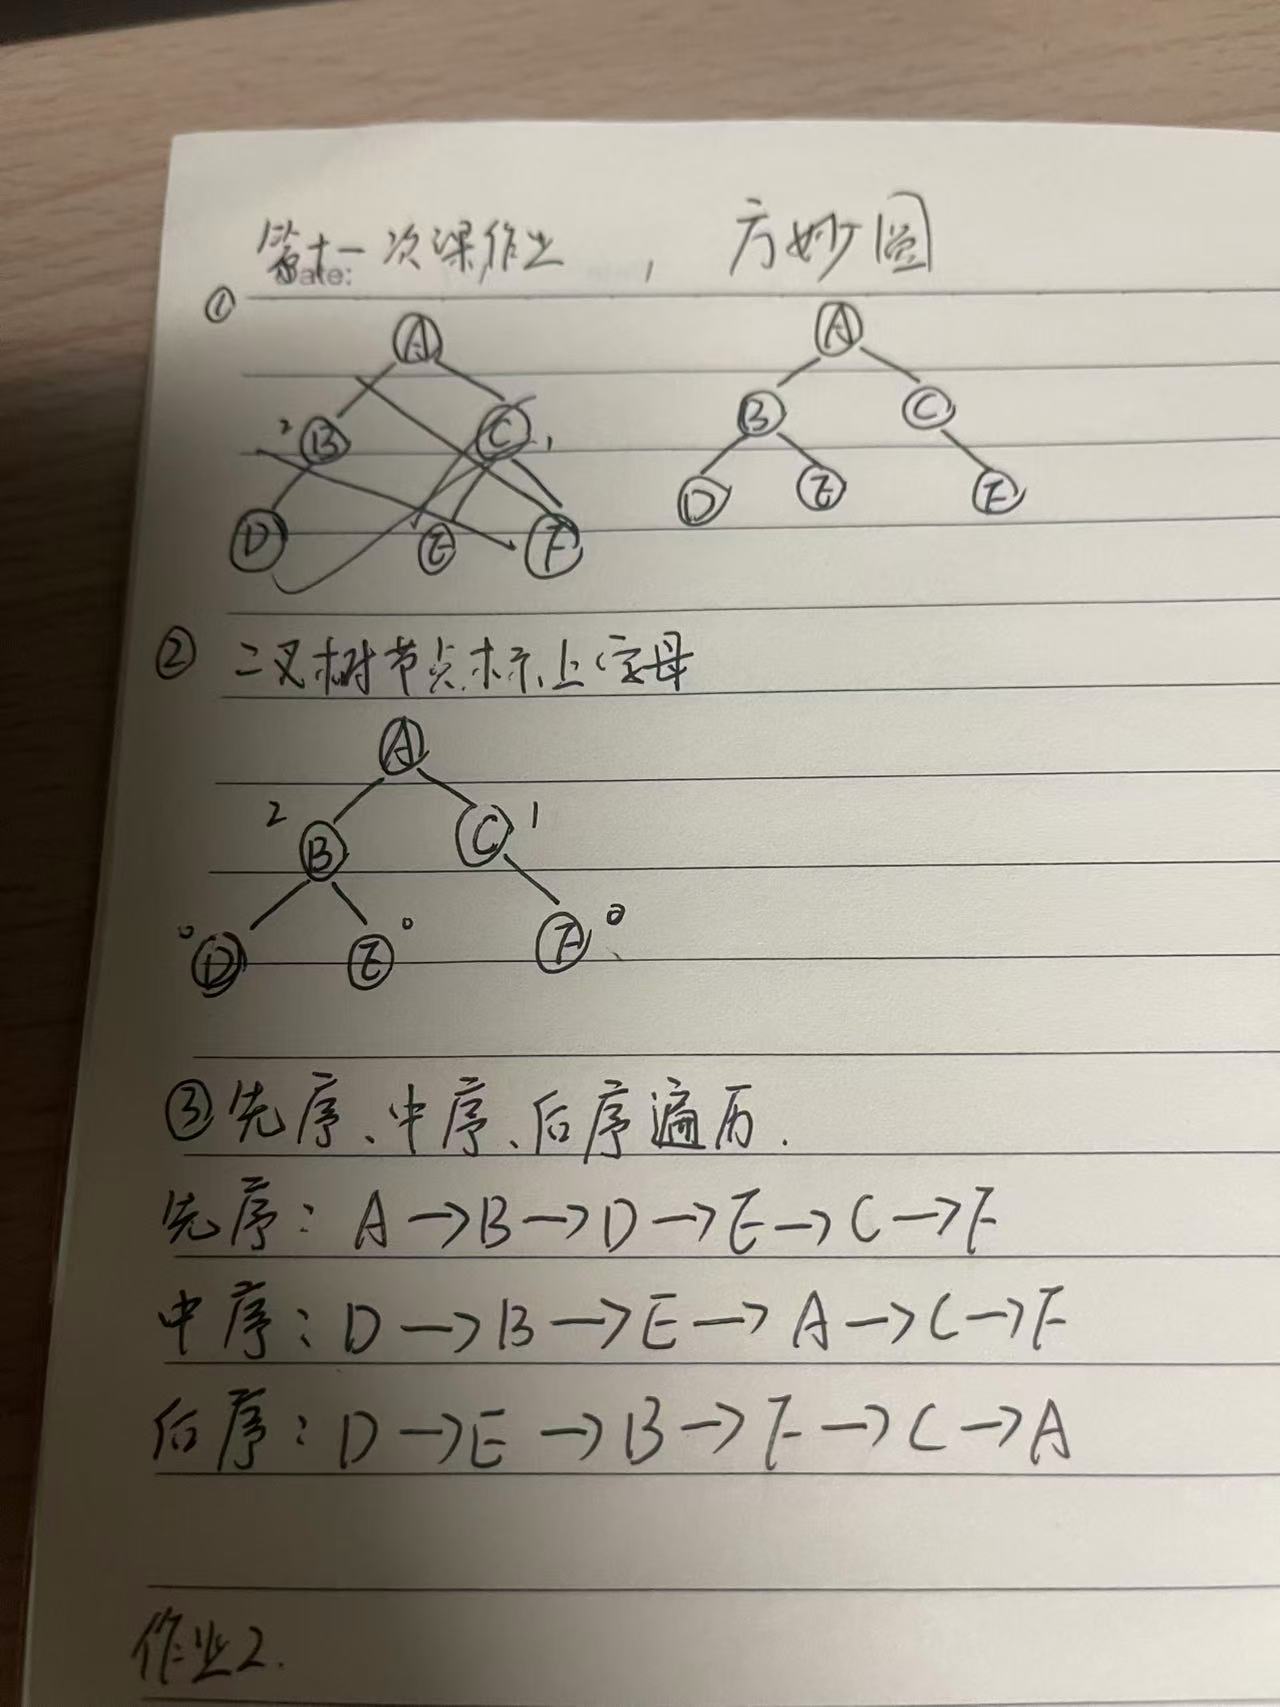 第十一次课作业, 方妙圆
ate:
①
A A
2 B C 1 B C
D E F D E F
② 二叉树节点标上字母
A
2 B C 1
0 D E 0 F 0
③ 先序、中序、后序遍历.
先序: A→B→D→E→C→F
中序: D→B→E→A→C→F
后序: D→E→B→F→C→A
作业2.